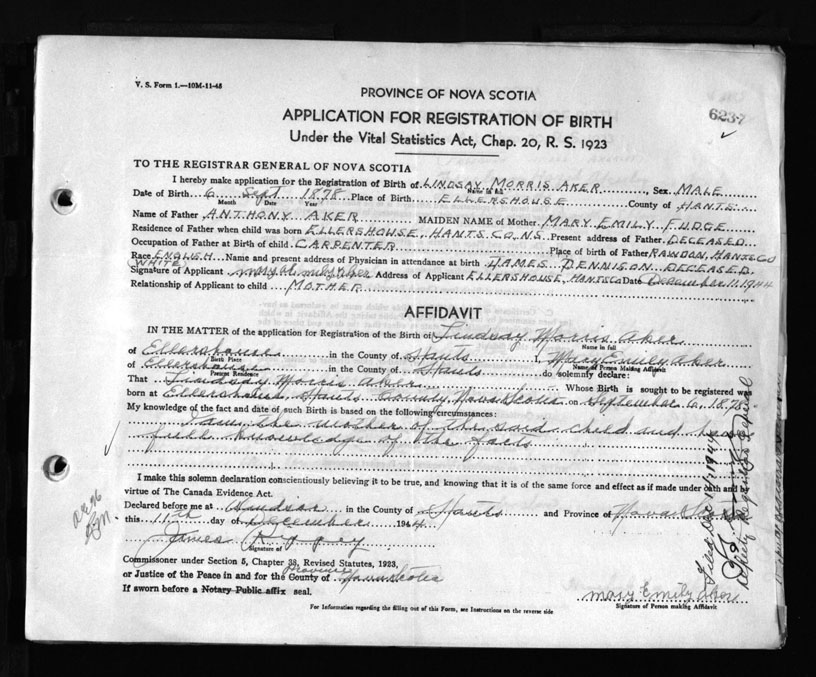 V. S. Form 1.—10M-11-45
PROVINCE OF NOVA SCOTIA
6237
APPLICATION FOR REGISTRATION OF BIRTH
Under the Vital Statistics Act, Chap. 20, R. S. 1923
TO THE REGISTRAR GENERAL OF NOVA SCOTIA
I hereby make application for the Registration of Birth of LINDSAY MORRIS AKER, Sex MALE
Name in full
Date of Birth 6 Sept 1878 Place of Birth ELLERSHOUSE County of HANTS
Month Date Year
Name of Father ANTHONY AKER MAIDEN NAME of Mother MARY EMILY FUDGE
Residence of Father when child was born ELLERSHOUSE, HANTS CO. N.S. Present address of Father DECEASED
Occupation of Father at Birth of child CARPENTER Place of birth of Father RAWDON, HANTS CO
Race ENGLISH Name and present address of Physician in attendance at birth JAMES DENNISON DECEASED
(WHITE)
Signature of Applicant Mary Emily Aker Address of Applicant ELLERSHOUSE, HANTS CO Date December 11, 1944
Relationship of Applicant to child MOTHER
AFFIDAVIT
IN THE MATTER of the application for Registration of the Birth of Lindsay Morris Aker
Name in full
of Ellershouse in the County of Hants I, Mary Emily Aker
Birth Place Name of Person Making Affidavit
of Ellershouse in the County of Hants do solemnly declare:
Present Residence
That Lindsay Morris Aker Whose Birth is sought to be registered was
born at Ellershouse, Hants County, Nova Scotia on September 6, 1878
My knowledge of the fact and date of such Birth is based on the following circumstances:
I am the mother of the said child and have
full knowledge of the facts
I make this solemn declaration conscientiously believing it to be true, and knowing that it is of the same force and effect as if made under oath and by
virtue of The Canada Evidence Act.
Declared before me at Windsor in the County of Hants and Province of Nova Scotia
this 11th day of December 1944
James
Signature of
Commissoner under Section 5, Chapter 38, Revised Statutes, 1923,
Province
or Justice of the Peace in and for the County of Nova Scotia
If sworn before a Notary Public affix seal.
Mary Emily Aker
Signature of Person making Affidavit
For Information regarding the filling out of this Form, see Instructions on the reverse side
Deputy Registrar General